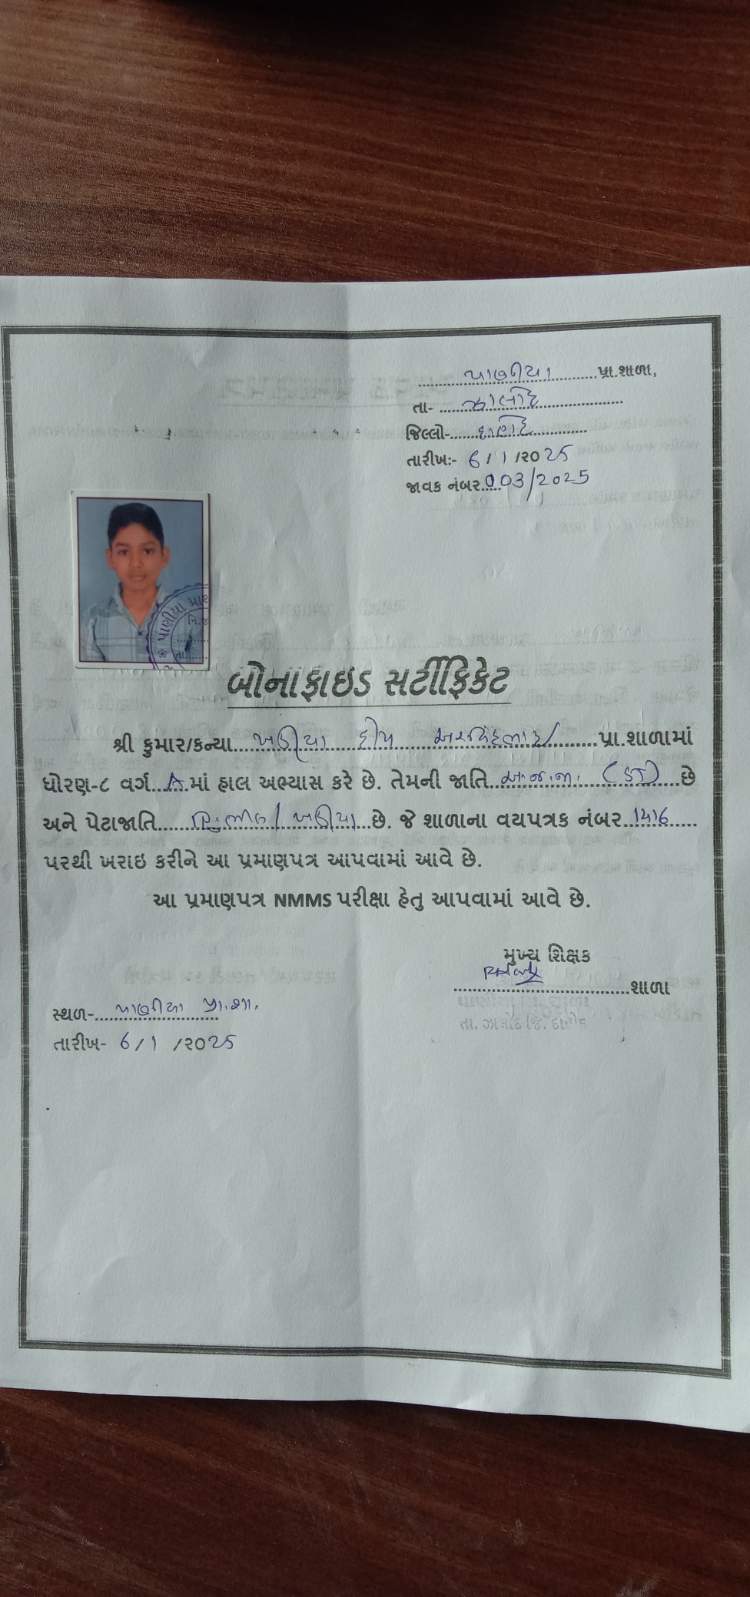 પાણીયા પ્રા.શાળા,
તા- ઝાલોદ
જિલ્લો- દાહોદ
તારીખઃ- 6/1/૨૦25
જાવક નંબર. 003/2025
પાણીયા પ્રા
બોનાફાઇડ સર્ટીફિકેટ
શ્રી કુમાર/કન્યા... દીપ ... પ્રા.શાળામાં
ધોરણ-૮ વર્ગ..A.માં હાલ અભ્યાસ કરે છે. તેમની જાતિ..અ.જ.જા. (ST) છે
અને પેટાજાતિ... છે. જે શાળાના વયપત્રક નંબર..1416
પરથી ખરાઇ કરીને આ પ્રમાણપત્ર આપવામાં આવે છે.
આ પ્રમાણપત્ર NMMS પરીક્ષા હેતુ આપવામાં આવે છે.
મુખ્ય શિક્ષક
શાળા
તા. ઝાલોદ જિ. દાહોદ
સ્થળ- પાણીયા પ્રા.શા.
તારીખ- 6/1/૨૦25